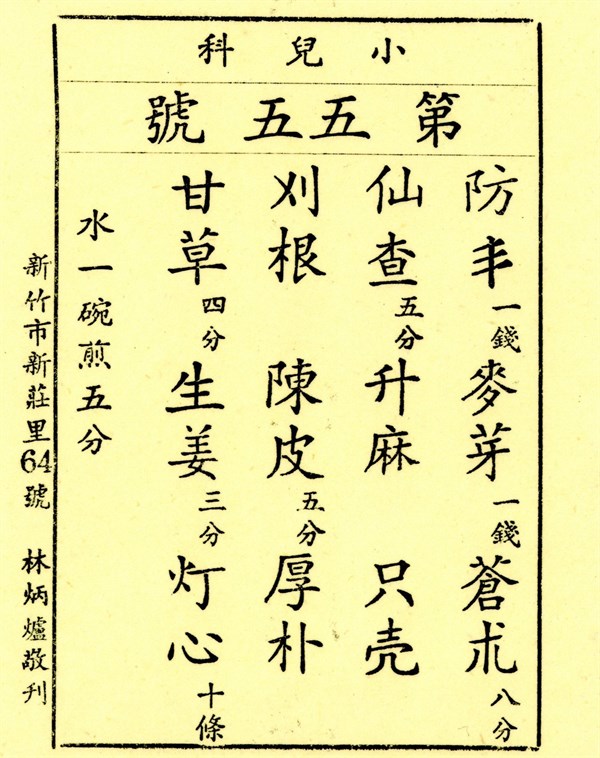 小兒科
第五五號
防丰一錢 麥芽一錢 蒼朮八分
仙查五分 升麻 只壳
刈根 陳皮五分 厚朴
甘草四分 生姜三分 灯心十條
水一碗煎五分
新竹市新莊里64號 林炳爐敬刋